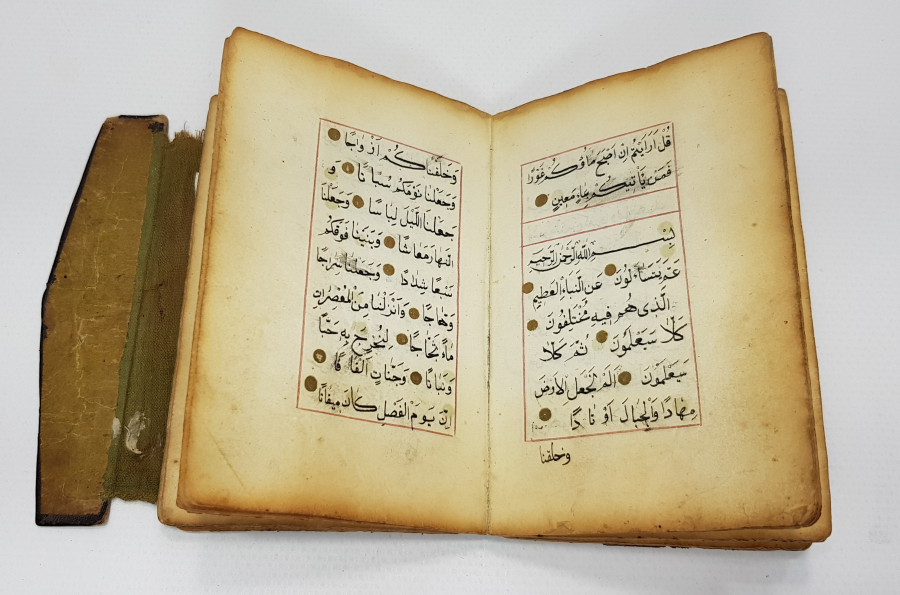 قُلْ اَرَاَيْتُمْ اِنْ اَصْبَحَ مَاؤُكُمْ غَوْرًا
فَمَنْ يَاْتيكُمْ بِمَاءٍ مَعينٍ
بِسْمِ اللهِ الرَّحْمٰنِ الرَّحيمِ
عَمَّ يَتَسَاءَلُونَ عَنِ النَّبَاِ الْعَظيمِ
الَّذى هُمْ فيهِ مُخْتَلِفُونَ
كَلَّا سَيَعْلَمُونَ ثُمَّ كَلَّا
سَيَعْلَمُونَ اَلَمْ نَجْعَلِ الْاَرْضَ
مِهَادًا وَالْجِبَالَ اَوْتَادًا
وخلقنا
وَخَلَقْنَاكُمْ اَزْوَاجًا
وَجَعَلْنَا نَوْمَكُمْ سُبَاتًا وَ
جَعَلْنَا اللَّيْلَ لِبَاسًا وَجَعَلْنَا
النَّهَارَ مَعَاشًا وَبَنَيْنَا فَوْقَكُمْ
سَبْعًا شِدَادًا وَجَعَلْنَا سِرَاجًا
وَهَّاجًا وَاَنْزَلْنَا مِنَ الْمُعْصِرَاتِ
مَاءً ثَجَّاجًا لِنُخْرِجَ بِهِ حَبًّا
وَنَبَاتًا وَجَنَّاتٍ اَلْفَافًا
اِنَّ يَوْمَ الْفَصْلِ كَانَ ميقَاتًا